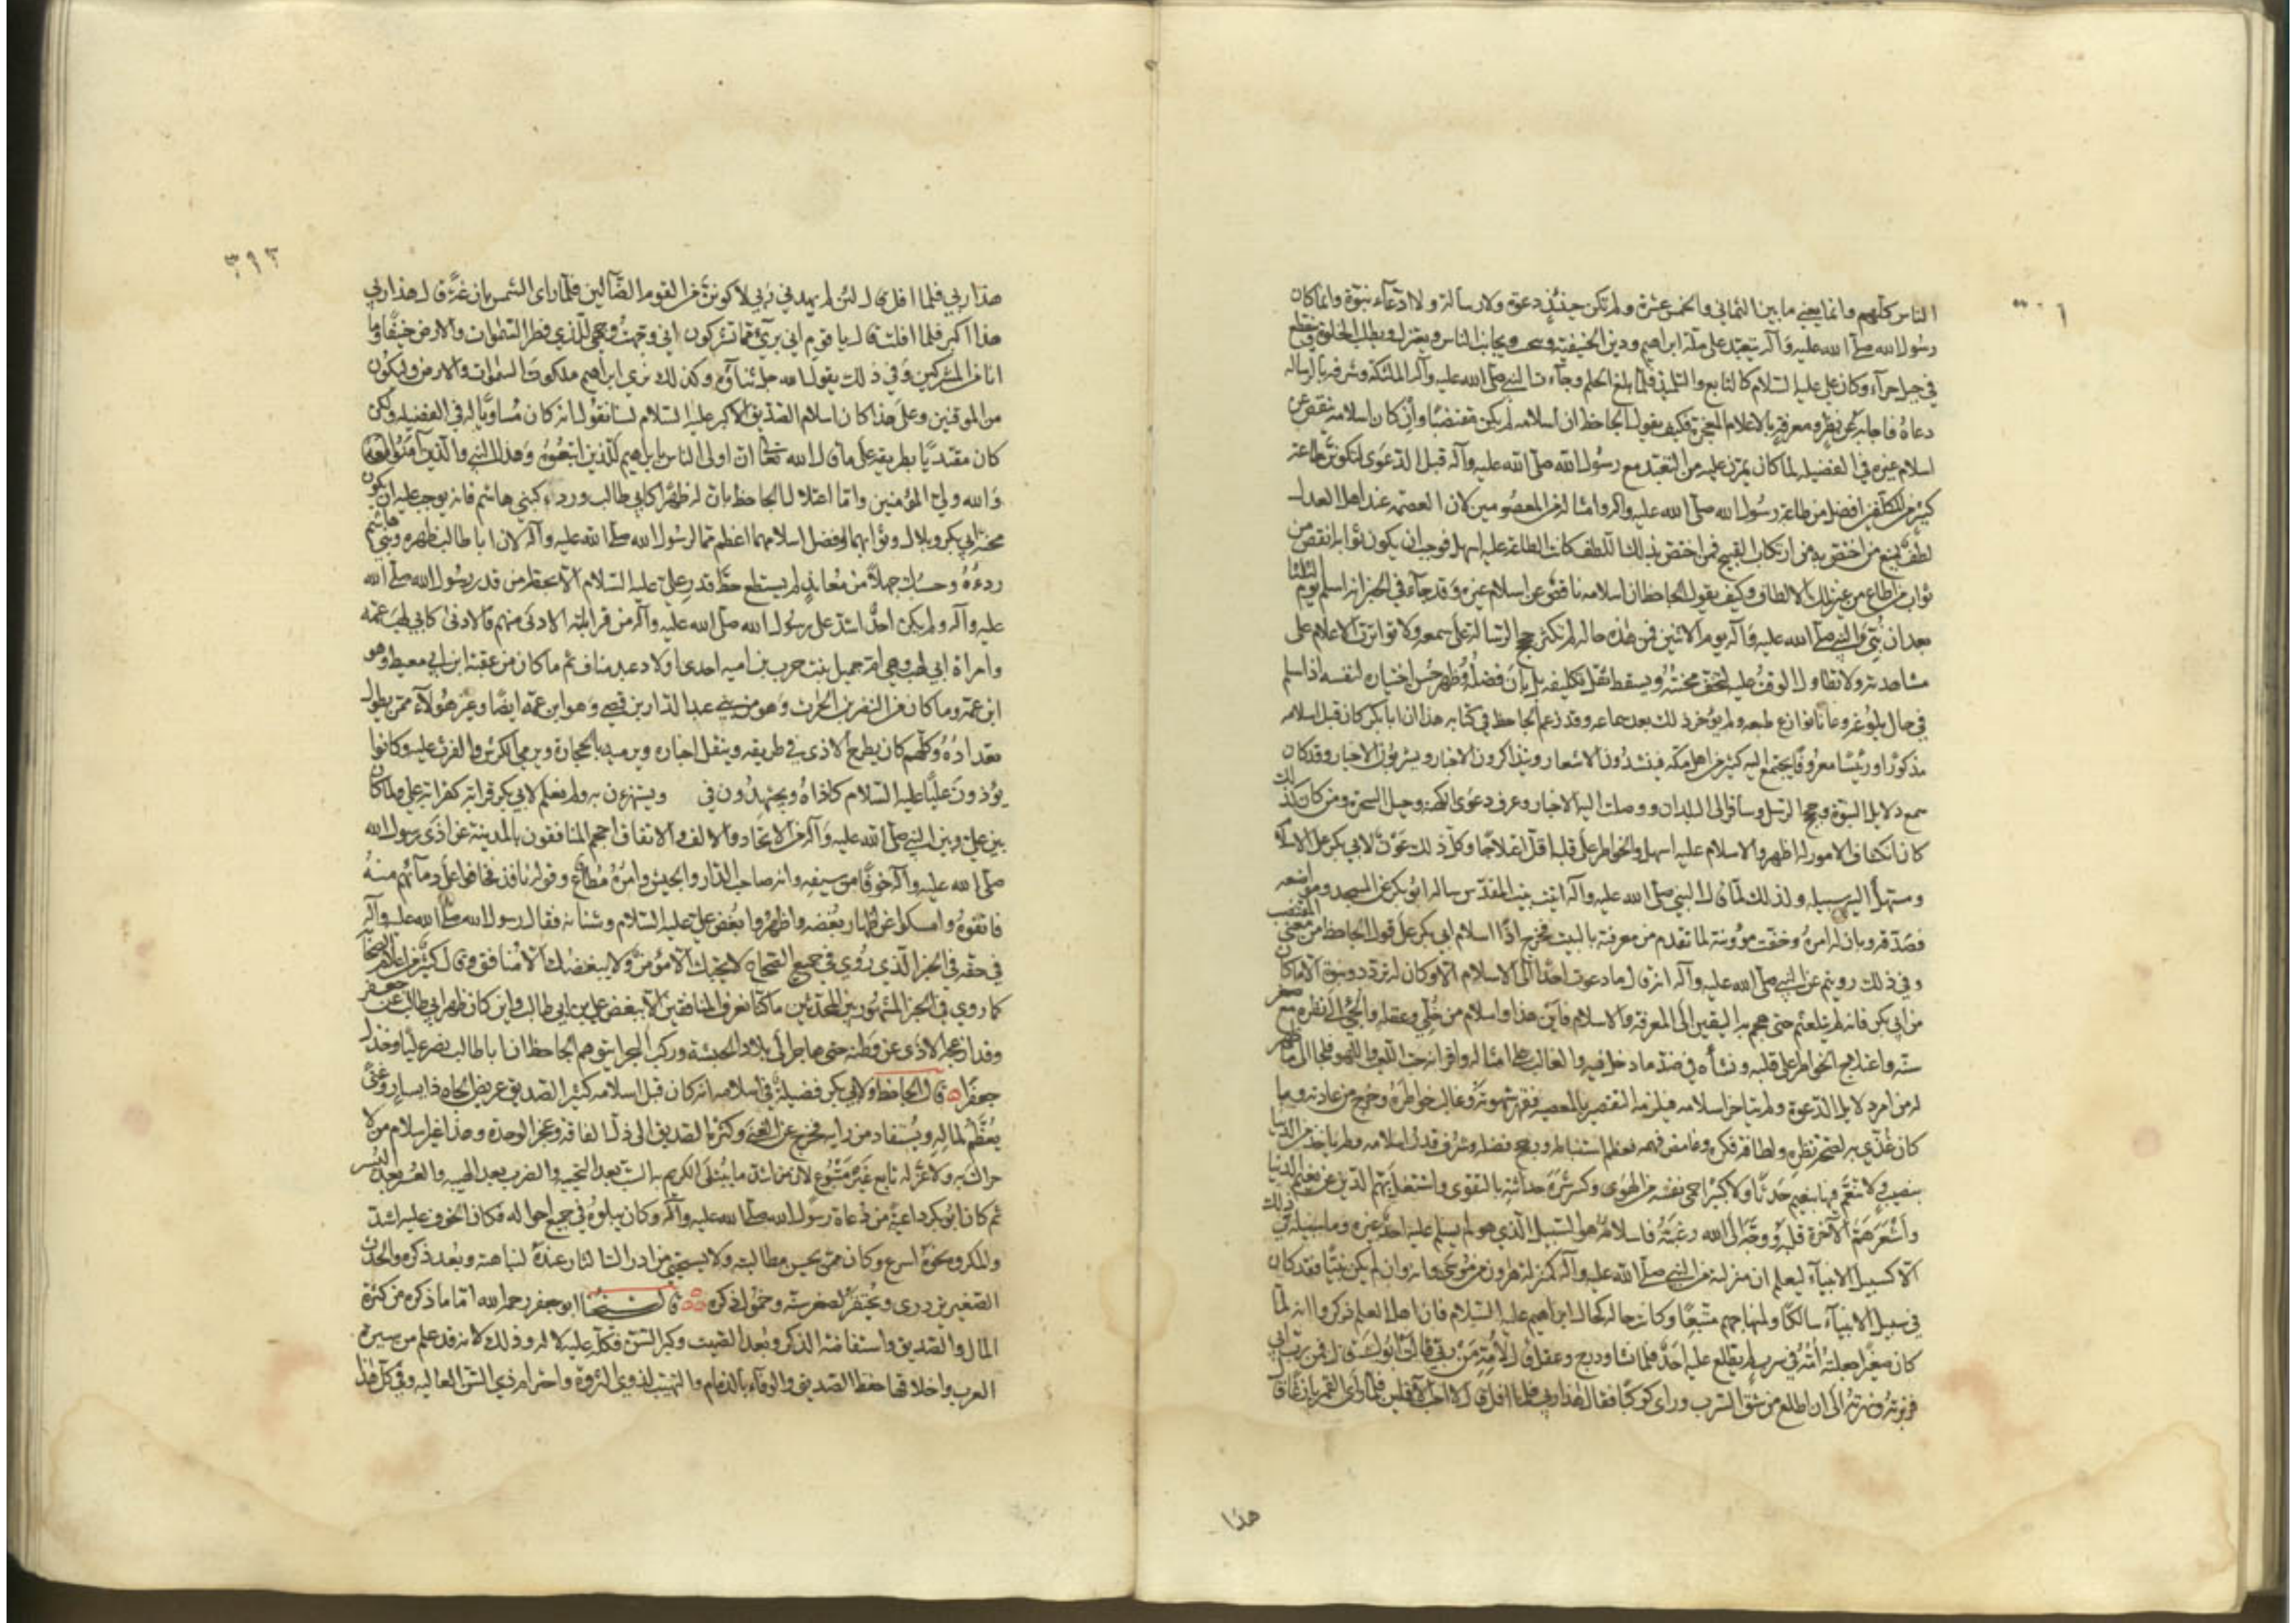 الناس كلهم وانما يعني ما بين الثماني والخمس عشرة ولم تكن حينئذ دعوة ولا رسالة ولا ادعاء نبوة وانما كان
رسول الله صلى الله عليه وآله يتعبد على ملة ابراهيم ودين الحنيفية ويجانب الناس ويعتزل ويطلب الخلوة وينقطع
في جبل حراء وكان علي عليه السلام كالتابع والتلميذ فلما بلغ الحلم وجاءت النبي صلى الله عليه وآله الملئكة وبشرته بالرسالة
دعاه فاجابه عن نظر ومعرفة بالاعلام المعجزة فكيف يقول الجاحظ ان اسلامه لم يكن مقتضبا وان كان اسلامه ينقص عن
اسلام غيره في الفضيلة لما كان يمرن عليه من التعبد مع رسول الله صلى الله عليه وآله قبل الدعوى لتكونن طاعة
كثير من المكلفين افضل من طاعة رسول الله صلى الله عليه وآله وامثاله من المعصومين لان العصمة عند اهل العدل
لطف يمنع من اختص به من ارتكاب القبيح فمن اختص بذلك اللطف كانت الطاعة عليه اسهل فوجب ان يكون ثوابه انقص من
ثواب من اطاع من غير تلك الالطاف وكيف يقول الجاحظ ان اسلامه ناقص عن اسلام غيره وقد جاء في الخبر انه اسلم يوم الثلثا
بعد ان نبئ النبي صلى الله عليه وآله يوم الاثنين فمن هذه حاله لم تكثر حجج الرسالة على سمعه ولا تواترت الاعلام على
مشاهدته ولا تطاول الوقت عليه لتخف محنته ويسقط ثقل تكليفه بل بان فضله وظهر حسن اختياره لنفسه اذ اسلم
في حال بلوغه وعانا نوازع طبعه ولم يؤخر ذلك بعد سماعه وقد زعم الجاحظ في كتابه هذا ان ابا بكر كان قبل اسلامه
مذكورا ورئيسا معروفا يجتمع اليه كثير من اهل مكة فينشدون الاشعار ويتذاكرون الاخبار ويشربون وقد كان
سمع دلايل النبوة وحجج الرسل وسافر الى البلدان ووصلت اليه الاخبار وعرف دعوى الكهنة وحيل السحرة ومن كان كذلك
كان انكشاف الامور له اظهر والاسلام عليه اسهل والخواطر على قلبه اقل اعتلاجا وكل ذلك عون لابي بكر على الاسلام
ومسهل اليه سبيله ولذلك لما قال النبي صلى الله عليه وآله اتيت بيت المقدس ساله ابو بكر عن المسجد ومواضعه
فصدقه وبان له امره وخفت مؤونته لما تقدم من معرفته بالبيت فخرج اذا اسلام ابي بكر على قول الجاحظ من معنى المقتضب
وفي ذلك رويتم عن النبي صلى الله عليه وآله انه قال ما دعوت احدا الى الاسلام الا وكان له تردد ونبوة الا ما كان
من ابي بكر فانه لم يتلعثم حتى هجم به اليقين الى المعرفة والاسلام فاين هذا واسلام من خلي وعقله والجئ الى نظره مع صغر
سنه واعتلاج الخواطر على قلبه ونشأه في ضد ما دخل فيه والغالب على امثاله واقرانه حب اللعب واللهو فلجا الى ما ظهر
له من دلايل الدعوة ولم يتاخر اسلامه فيلزمه التقصير بالمعصية فقهر شهوته وغالب خواطره وخرج من عادته وما
كان غذي به لصحة نظره ولطافة فكره وغامض فهمه فعظم استنباطه ورجح فضله وشرف قدر اسلامه ولم ياخذ من الدنيا
بنصيب ولا تنعم فيها بنعيم حدثا ولا كبيرا حمى نفسه عن الهوى وكسر شرة حداثته بالتقوى واشتغل بهم الدين عن نعيم الدنيا
واشعر هم الآخرة قلبه ووجه الى الله رغبته فاسلامه هو السبيل الذي لم يسلم عليه احد غيره وما سبيله في ذلك
الا كسبيل الانبياء ليعلم ان منزلته من النبي صلى الله عليه وآله كمنزلة هرون من موسى وانه وان لم يكن نبيا فقد كان
في سبيل الانبياء سالكا ولمنهاجهم متبعا وكانت حاله كحال ابراهيم عليه السلام فان اهل العلم ذكروا انه لما
كان صغيرا جعلته امه في سرب لم يطلع عليه احد فلما نشا ودرج وعقل قال لامه من ربي قالت ابوك قال فمن رب ابي
فزبرته ونهرته الى ان اطلع من شق السرب وراى كوكبا فقال هذا ربي فلما افل قال لا احب الآفلين فلما راى القمر بازغا قال
هذا
٣٩٣
هذا ربي فلما افل قال لئن لم يهدني ربي لاكونن من القوم الضالين فلما راى الشمس بازغة قال هذا ربي
هذا اكبر فلما افلت قال يا قوم اني بريء مما تشركون اني وجهت وجهي للذي فطر السموات والارض حنيفا وما
انا من المشركين وفي ذلك يقول الله جل ثناؤه وكذلك نري ابراهيم ملكوت السموات والارض وليكون
من الموقنين وعلى هذا كان اسلام الصديق الاكبر عليه السلام لسنا نقول انه كان مساويا له في الفضيلة ولكن
كان مقتديا بطريقه على ما قال الله تعالى ان اولى الناس بابراهيم للذين اتبعوه وهذا النبي والذين آمنوا معه
والله ولي المؤمنين واما اعتلال الجاحظ بان له ظهرا كابي طالب وردءا كبني هاشم فانه يوجب عليه ان يكون
محنة ابي بكر وبلال وثوابهما وفضل اسلامهما اعظم مما لرسول الله صلى الله عليه وآله لان ابا طالب ظهره وبني هاشم
ردءه وحسبك جهلا من معاند لم يستطع حط قدر علي عليه السلام الا بحطه من قدر رسول الله صلى الله
عليه وآله ولم يكن احد اشد على رسول الله صلى الله عليه وآله من قرابته الادنى منهم فالادنى كابي لهب عمه
وامراة ابي لهب وهي ام جميل بنت حرب بن اميه احدى اولاد عبد مناف ثم ما كان من عقبة ابن ابي معيط وهو
ابن عمه وما كان من النضر بن الحرث وهو من بني عبد الدار بن قصي وهو ابن عمه ايضا وغير هؤلاء ممن يطول
تعداده وكلهم كان يطرح الاذى في طريقه وينقل اخباره ويرميه بالحجارة ويرمي الكرش والفرث عليه وكانوا
يؤذون عليا عليه السلام كاذاه ويجتهدون في ويستهزءون به ولم نعلم لابي بكر قرابة كقرابة علي ولما كان
بين علي وبين النبي صلى الله عليه وآله من الاتحاد والالف والاتفاق احجم المنافقون بالمدينة عن اذى رسول الله
صلى الله عليه وآله خوفا من سيفه وانه صاحب الدار والجيش وامره مطاع وقوله نافذ فخافوا على دمائهم منه
فاتقوه وامسكوا عن اظهار بغضه واظهروا بغض علي عليه السلام وشنانه فقال رسول الله صلى الله عليه وآله
في حقه في الخبر الذي روي في جميع الصحاح لا يحبك الا مؤمن ولا يبغضك الا منافق وقال كثير من اعلام الصحابة
كما روي في الخبر المشهور بين المحدثين ما كنا نعرف المنافقين الا ببغض علي بن ابي طالب واين كان ظهر ابي طالب عن جعفر
وقد ازعجه الاذى عن وطنه حتى هاجر الى بلاد الحبشة وركب البحر ايتوهم الجاحظ ان ابا طالب نصر عليا وخذل
جعفرا قال الجاحظ ولابي بكر فضيلة في اسلامه انه كان قبل اسلامه كثير الصديق عريض الجاه ذا يسار وغنى
يعظم لماله ويستفاد من رايه فخرج عن الغنى وكثرة الصديق الى ذل الفاقة وعجز الوحدة وهذا غير اسلام من لا
حراك به ولا عز له تابع غير متبوع لان من اشد ما يبتلى الكريم به السب بعد التحية والضرب بعد الهيبة والعسر بعد اليسر
ثم كان ابو بكر داعية من دعاة رسول الله صلى الله عليه وآله وكان يتلوه في جميع احواله فكان الخوف عليه اشد
والمكروه نحوه اسرع وكان ممن يحسن مطالبته ولا يستحيى من ادراك الثار عنده لنباهته وبعد ذكره والحدث
الصغير يزدرى ويحتقر لصغر سنه وخمول ذكره قال شيخنا ابو جعفر رحمه الله اما ما ذكره من كثرة
المال والصديق واستفاضة الذكر وبعد الصيت وكبر السن فكله عليه لا له وذلك لانه قد علم من سيرة
العرب واخلاقها حفظ الصديق والوفاء بالذمام والتهيب لذوي الثروة واحترام ذي السن العالية وفي كل هذا